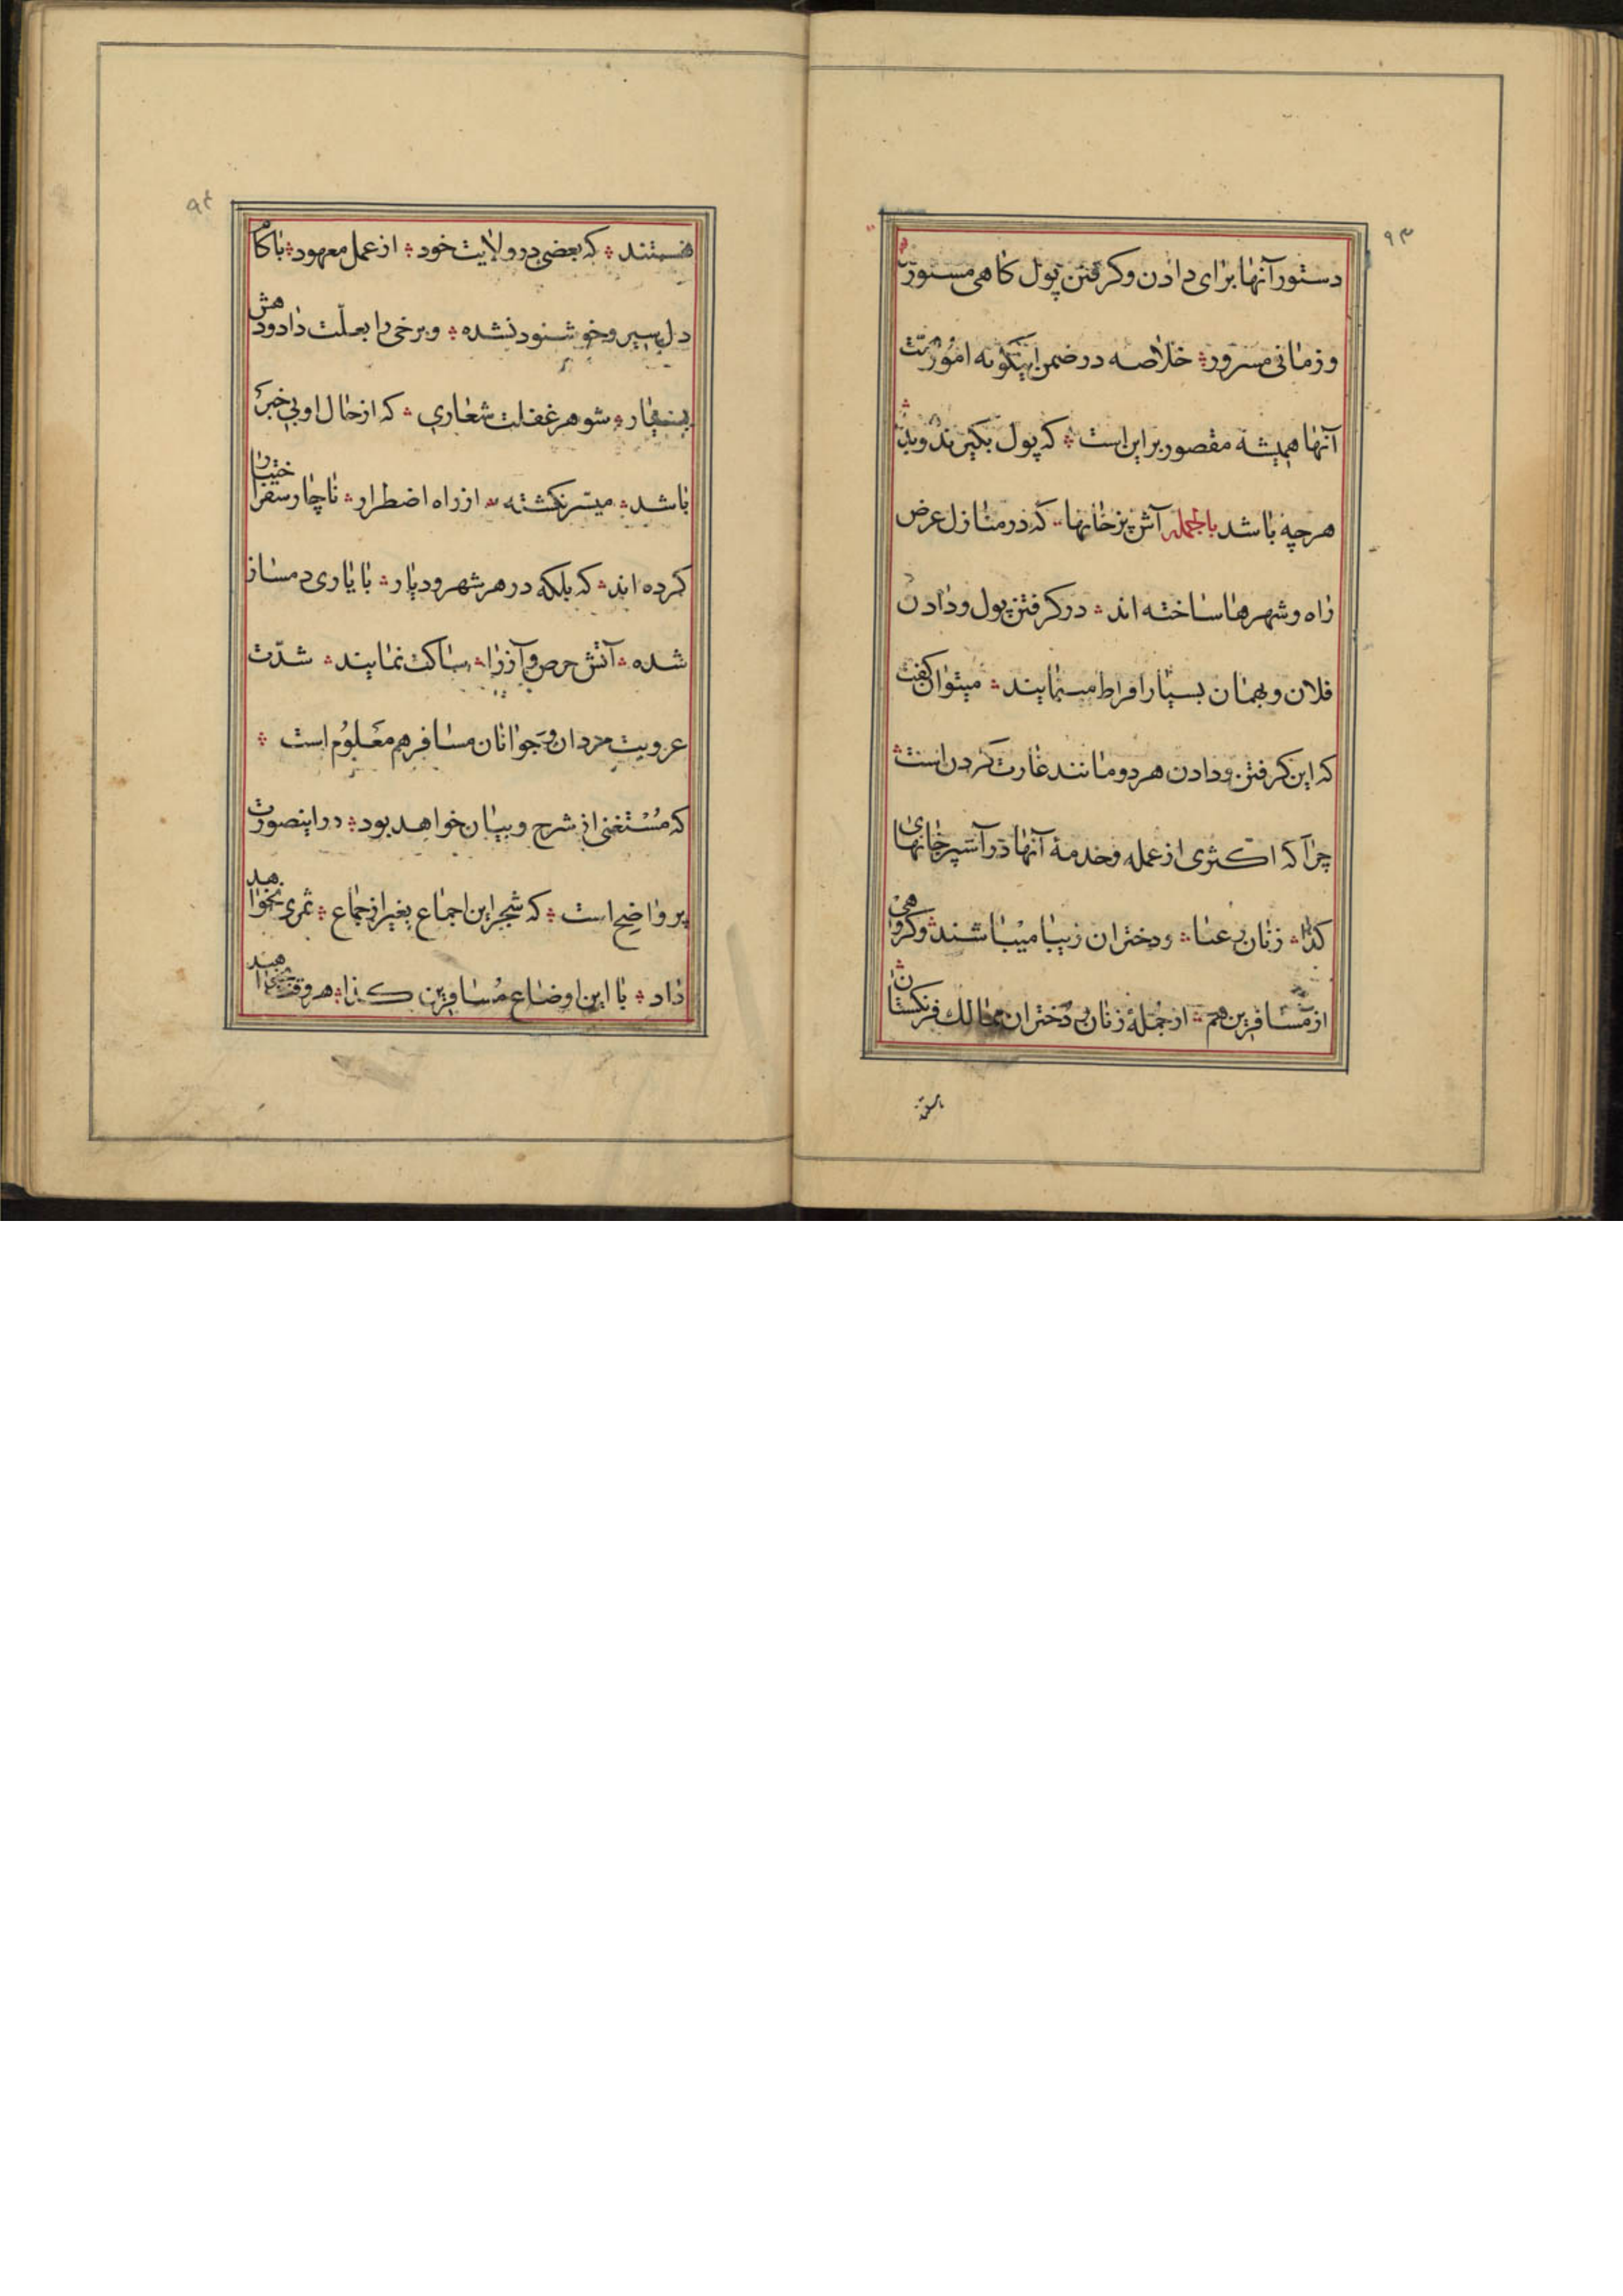 ۹۳
دستور آنها برای دادن و کرفتن پول کاهی مستور
و زمانی مسرور خلاصه در ضمن اینکونه امور نیت
آنها همیشه مقصور بر این است که پول بکیرند و بدهند
هرچه باشد بالجمله آش پزخانها که در منازل عرض
راه و شهرها ساخته اند در کرفتن پول و دادن
فلان و بهمان بسیار افراط مینمایند میتوان کفت
که این کرفتن و دادن هر دو مانند غارت کردن است
چرا که اکثری از عمله و خدمهٔ آنها در آشپزخانهای
کذا زنان رعنا و دختران زیبا میباشند و کروهی
از مسافرین هم از جملهٔ زنان و دختران ممالک فرنکستان
۹۴
هستند که بعضی در ولایت خود از عمل معهود با کام
دل سیر و خوشنود نشده و برخی را بعلّت داد و
شوهر غفلت شعاری که از حال او بی خبر
باشد میسر نکشته از راه اضطرار ناچار سفر اختیار
کرده اند که بلکه در هر شهر و دیار با یاری دمساز
شده آتش حرص و آز را ساکت نمایند شدّت
عروبیت مردان و جوانان مسافر هم معلوم است
که مُستغنی از شرح و بیان خواهد بود در اینصورت
پر واضح است که شجر این اجماع بغیر از جماع ثمری نخواهد
داد با این اوضاع مُسافرین کذا هر وقت